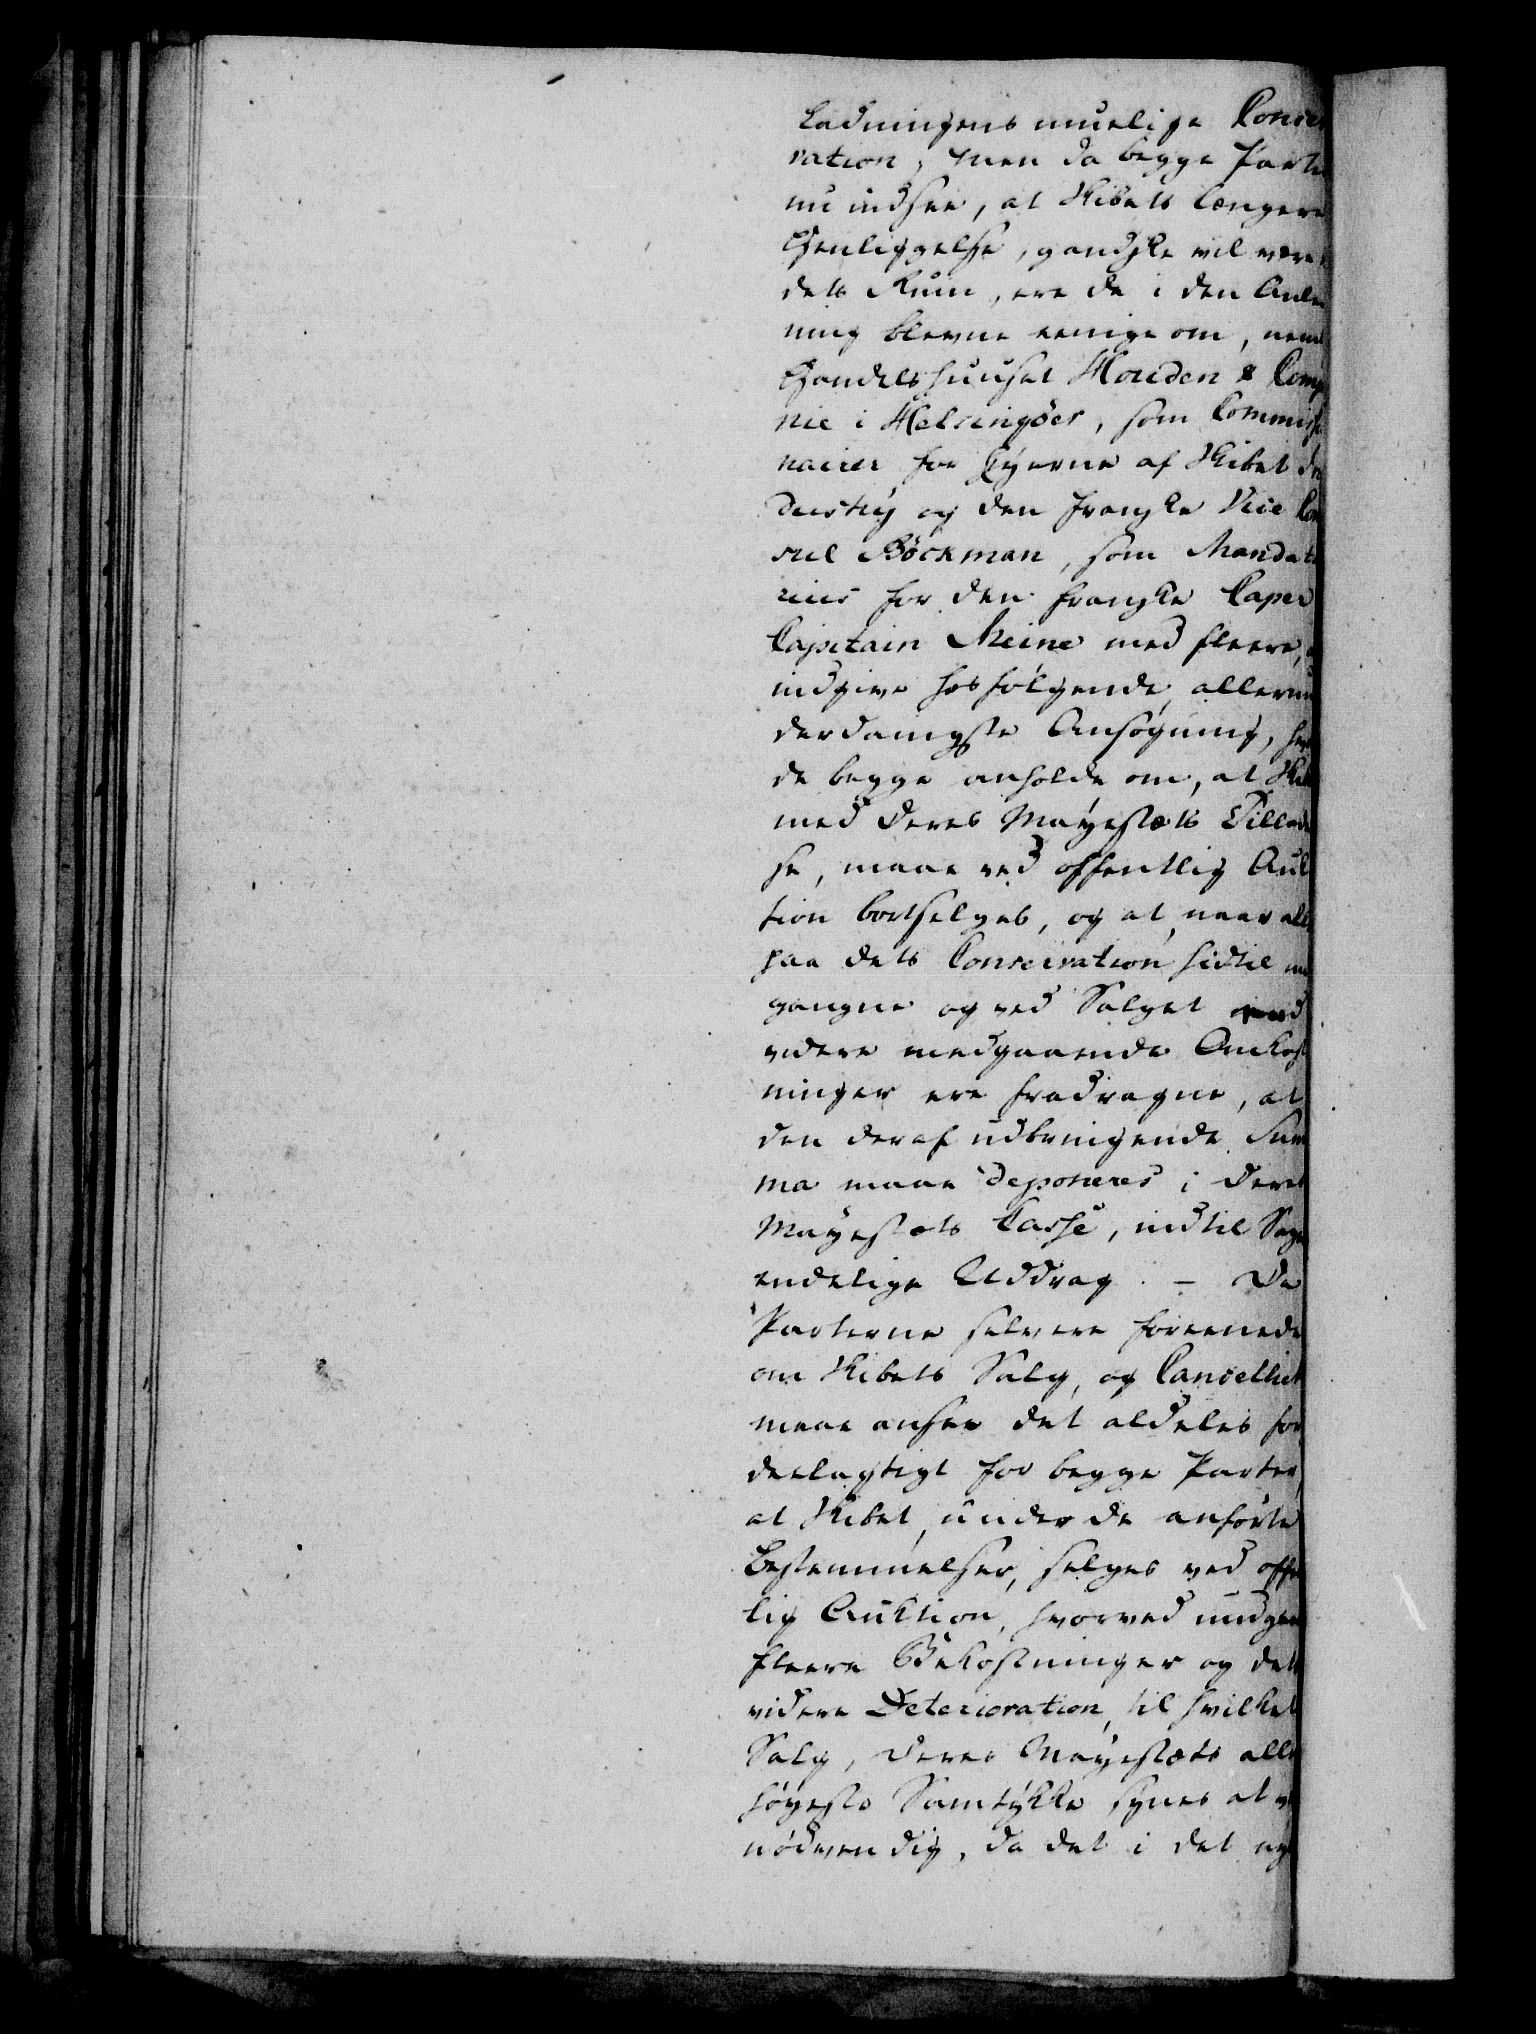 Ladningens muelige Conser
vation, men da begge Parte
nu indsee, at Skibets længere
Henliggelse, gandske vil være
dets Ruin, ere de i den Anled
ning blevne eenige om, neml
Handelshuuset Houden & Comp
nie i Helsingöer, som Commiss
nairer for Eyerne af Skibet In
dustry og den franske Vice Con
sul Böckman, som Mandata
rius for den franske Caper
Capitain Meine med fleere, 
indgive hosfølgende allerun
derdanigste Ansøgning, hvor
de begge anholde om, at Skib
med Deres Mayestæts Tillade
se, maae ved offentlig Auk
tion bortselges, og at, naar alle
paa dets Conservation hidtil med
gangne og ved Salget
videre medgaaende Omkost
ninger ere fradragne, at
den deraf udbringende Sum
ma maae deponeres i Deres
Mayestæts Casse, indtil Sage
endelige Uddrag. – Da
Parterne selv ere foreenede
om Skibets Salg, og Cancelliet
maae ansee det aldeles for
deelagtigt for begge Parter,
at Skibet, under de anførte
Bestemmelser, selges ved offe
lig Auktion, hvorved undgaaes
fleere Bekostninger og dets
videre Deterioration, til hvilket
Salg, Deres Mayestæts aller
høyeste Samtykke synes at v
nødvendig, da det i det ny